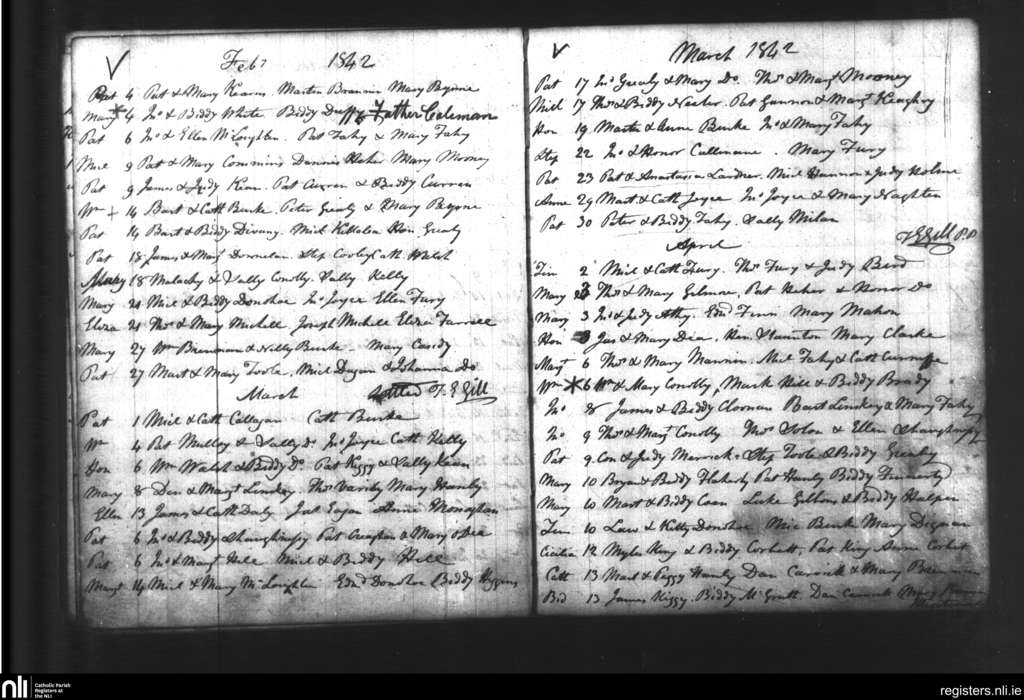 Feb? 1842
Pat 4 Pat & Mary Kearns Martin Brannin Mary Byrne
Mary 4 Jno & Biddy White Biddy Duffy Father Coleman
Pat 6 Jno & Ellen McLoughlin Pat Fahy & Mary Fahy
Mic 9 Pat & Mary Commins Dennis Maher Mary Mooney
Pat 9 James & Judy Kean. Pat Curran & Biddy Curran
Wm 14 Bart & Cath Burke. Peter Grealy & Mary Byrne
Pat 14 Bart & Biddy Divany. Mich Hon. Grealy
Pat 18 James & Margt Donnelan. Step Cooley Cath Walsh
Mary 18 Malachy & Sally Conolly. Sally Kelly
Mary 21 Mich & Biddy Donohoe Jno Joyce Ellen Fury
Eliza 21 Thos & Mary Michell, Joseph Michell Eliza Farrell
Mary 27 Wm Brennan & Nelly Burke. Mary Casidy
Pat 27 Mart & Mary Toole. Mich Dugan & Johanna Do
March settled F. E Gill
Pat 1 Mich & Cath Callagan Cath Burke
Wm 4 Pat Mulloy & Sally Do Jno Joyce Cath Kelly
Hon 6 Wm Walsh & Biddy Do Pat Higgy & Sally Kean
Mary 8 Den & Margt Linskey. Thos Varily Mary Hanly
Ellen 13 James & Cath Daly Jas Egan Annie Monaghan
Pat 6 Jno & Biddy Shaughnessy Pat Creaghan & Mary
Pat 6 Jno & Margt Hill Mich & Biddy Hill
Margt 14 Mich & Mary McLoughlin Edmd Donohoe Biddy Higgins
March 1842
Pat 17 Jno Grealy & Mary Do. Thos & Margt Mooney
Mich 17 Thos & Biddy Pat Gannon & Margt Keaghry
Hon 19 Martin & Anne Burke Jno & Mary Fahy
Step 22 Jno & Honor Cullinane. Mary Fury
Pat 23 Pat & Anastasia Lardner. Mich Hannon & Judy
Anne 29 Mart & Cath Joyce Jno Joyce & Mary Naghten
Pat 30 Peter & Biddy Fahy. Sally Milan
April F E Gill P.P
Tim 2 Mich & Cath Fury. Thos Fury & Judy Bird
Mary 3 Thos & Mary Gilmore. Pat Maher & Honor Do
Mary 3 Jno & Judy Athy. Edmd Finn Mary Mahon
Hon 3 Jas & Mary Dea. Ken. Staunton Mary Clarke
Margt 6 Thos & Mary Mannin. Mich Fahy & Cath
Wm 6 Wm & Mary Conolly, Mark Hill & Biddy Brady
Jno 8 James & Biddy Cloonan Bart Linskey & Mary Fahy
Jno 9 Thos & Margt Conolly Thos & Ellen Shaughnessy
Pat 9 Con & Judy Merrick. Step Toole & Biddy Grealy
Mary 10 Bryan & Biddy Flaherty Pat Hanly Biddy Finnerty
Mary 10 Mart & Biddy Coen Luke & Biddy Halpin
Tim 10 Law & Kitty Donohoe. Mic Burke Mary Dignan
Cecilia 12 Myles King & Biddy Corbett, Pat King Anne Corbet
Cath 13 Mart & Peggy Hanly Dan Carrick & Mary Brennan
Bid 13 James Higgy. Biddy McGrath. Dan Carrick Mary
nli
Catholic Parish
Registers at
the NLI
registers.nli.ie